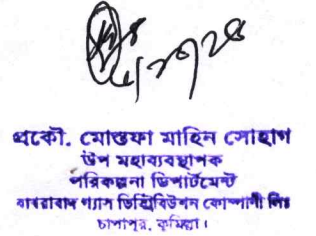 প্রকৌ. মোস্তফা মাহিন সোহাগ
উপ মহাব্যবস্থাপক
পরিকল্পনা ডিপার্টমেন্ট
বাখরাবাদ গ্যাস ডিস্ট্রিবিউশন কোম্পানী লিঃ
চাপাপুর, কুমিল্লা।